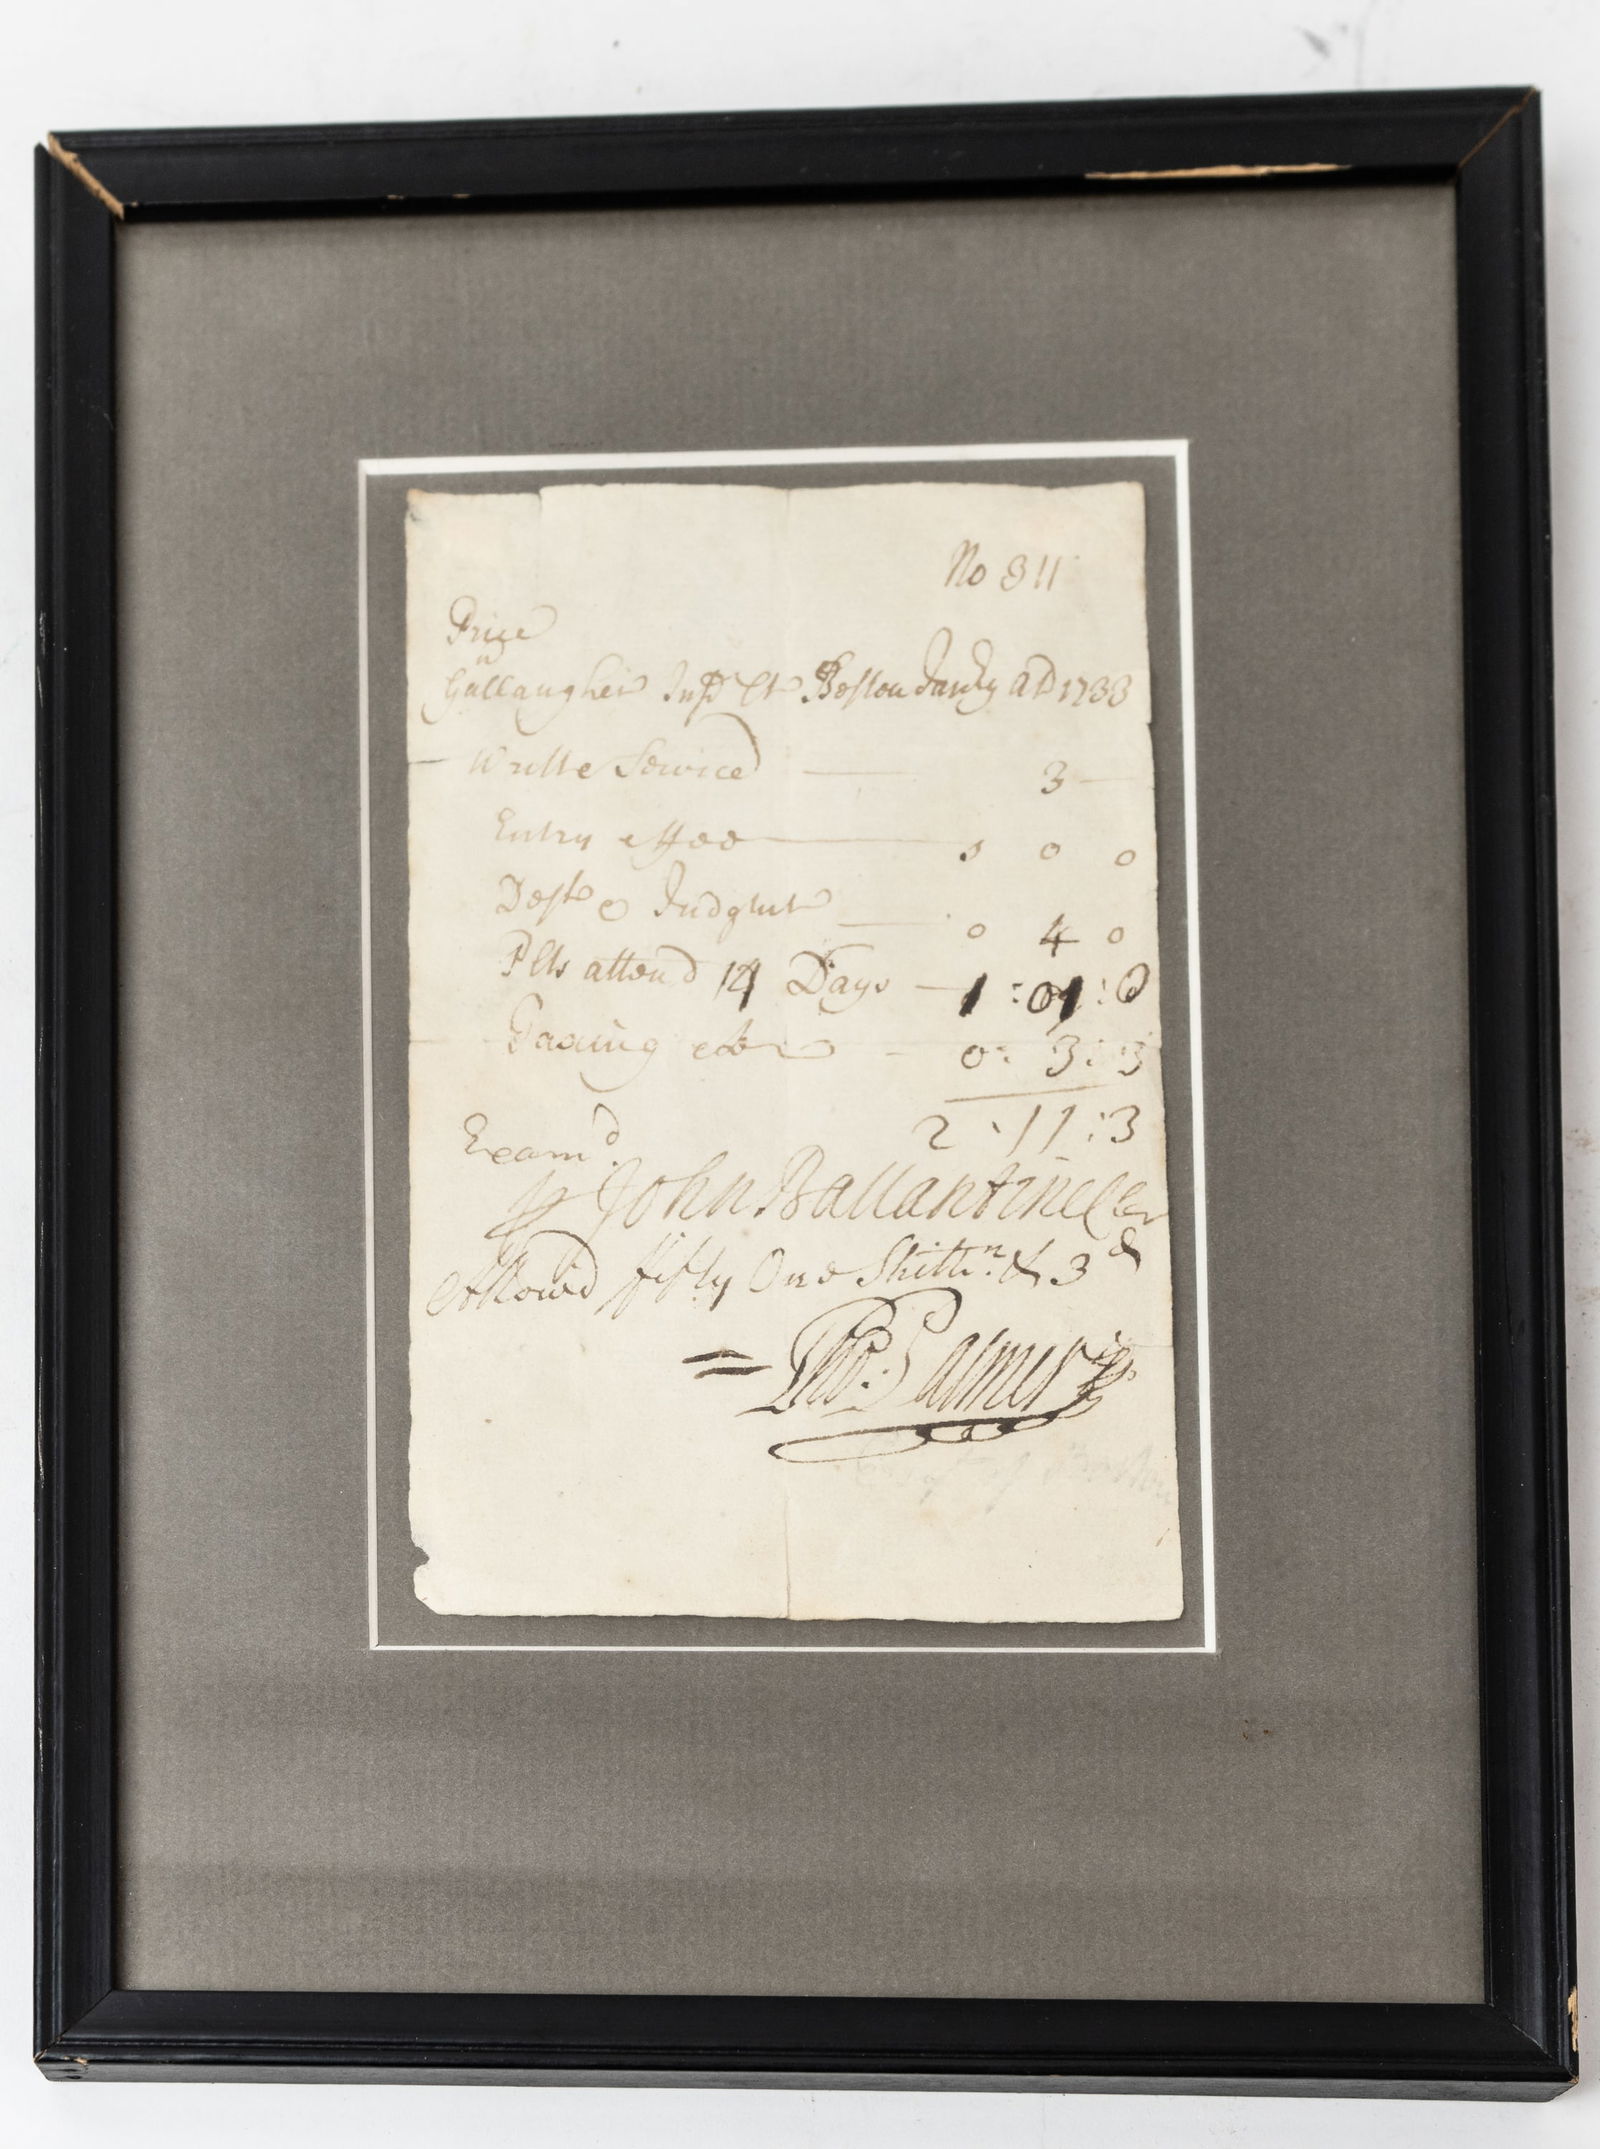 No 311
Price
v
Gallaugher Infr Ct Boston Janry AD 1733
Writt & Service — 3 —
Entry — 0 0
Deft & Judgmt — 0 4 0
Plts attend 14 Days — 1:01:0
Taxing — 0: 3: 3
2:11:3
Exam'd
John Ballantine Cler
Allow'd fifty One Shilln. & 3d
= Tho: Palmer